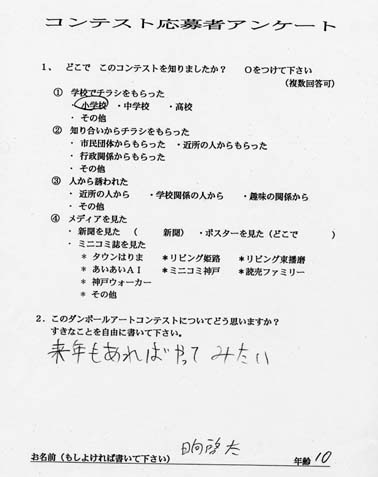 コンテスト応募者アンケート
1、 どこで このコンテストを知りましたか? ○をつけて下さい
(複数回答可)
① 学校でチラシをもらった
・小学校 ・中学校 ・高校
・その他
② 知り合いからチラシをもらった
・市民団体からもらった ・近所の人からもらった
・行政関係からもらった
・その他
③ 人から誘われた
・近所の人から ・学校関係の人から ・趣味の関係から
・その他
④ メディアを見た
・新聞を見た ( 新聞) ・ポスターを見た(どこで )
・ミニコミ誌を見た
* タウンはりま *リビング姫路 *リビング東播磨
* あいあいAI *ミニコミ神戸 *読売ファミリー
* 神戸ウォーカー
* その他
2.このダンボールアートコンテストについてどう思いますか?
すきなことを自由に書いて下さい。
来年もあればやってみたい
お名前(もしよければ書いて下さい) 日向啓太 年齢 10